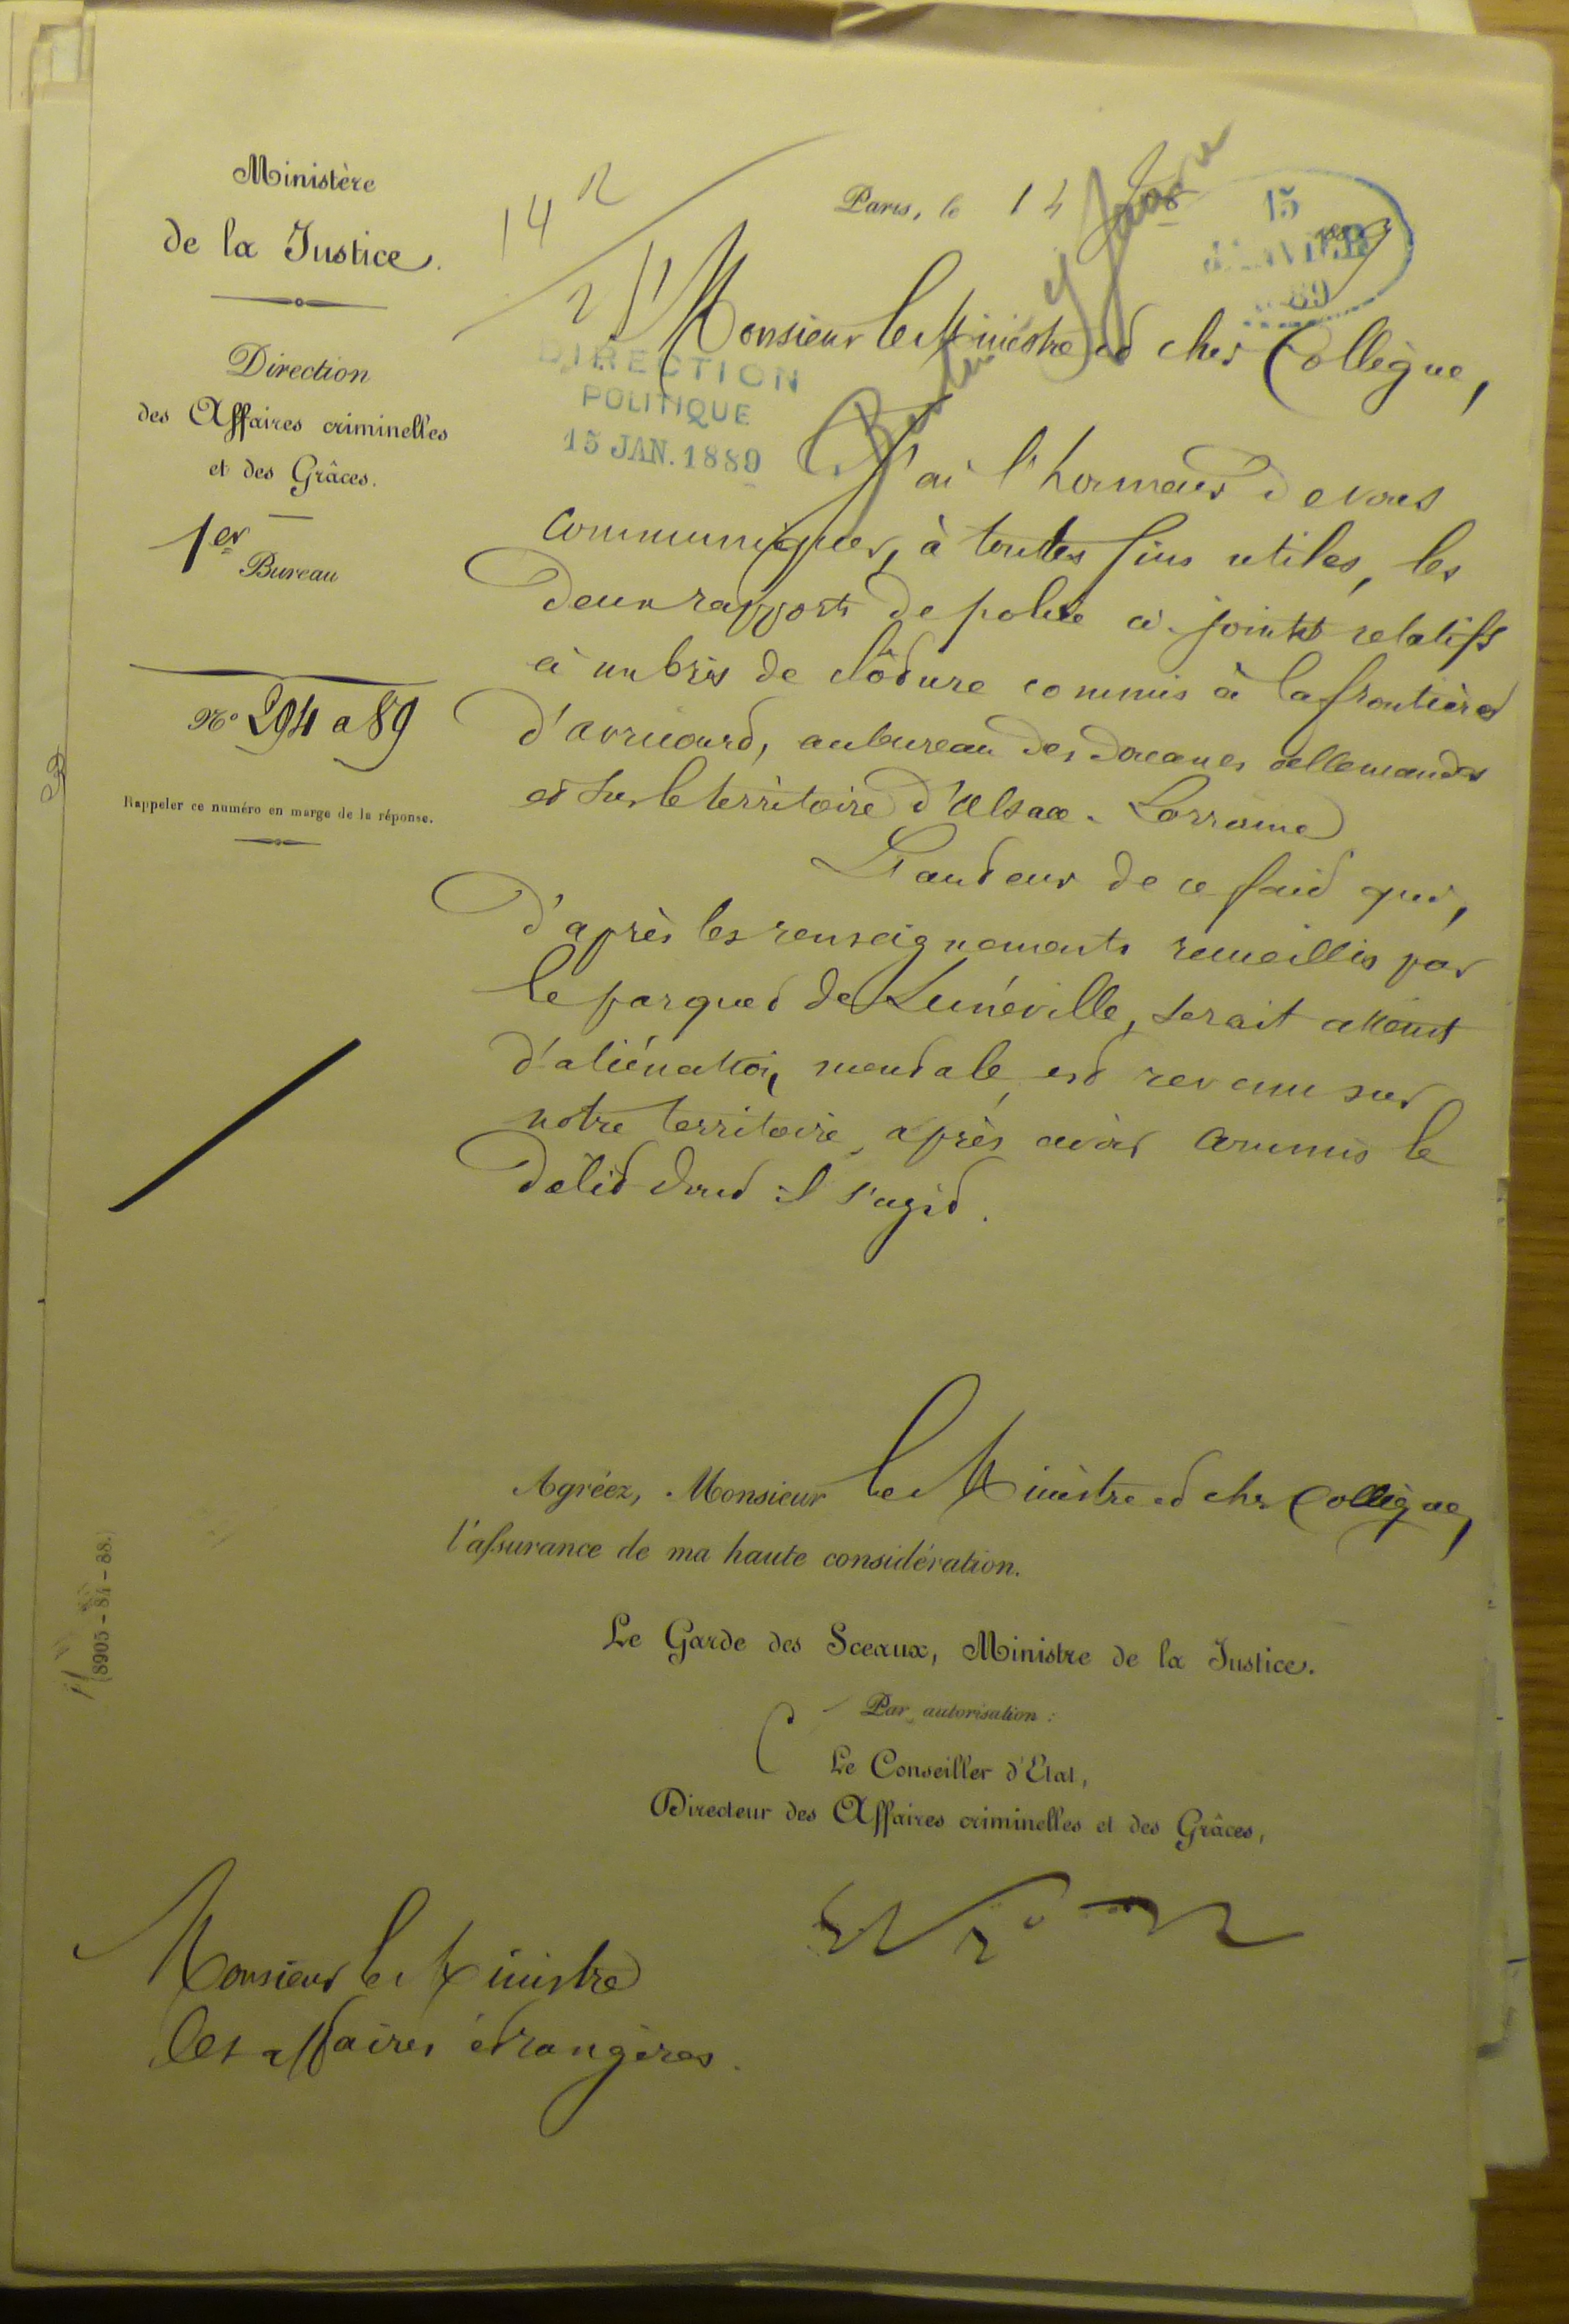 Ministère
de la Justice.
Direction
des Affaires criminelles
et des Grâces.
1er Bureau
N° 294 a 89
Rappeler ce numéro en marge de la réponse.
14
Paris, le 14
15
JANVIER
89
DIRECTION
POLITIQUE
15 JAN. 1889
Monsieur le Ministre et cher Collègue,
J'ai l'honneur de vous
communiquer, à toutes fins utiles, les
deux rapports de police ci-joints relatifs
à un bris de clôture commis à la frontière
d'Avricourt, au bureau des douanes allemandes
et sur le territoire d'Alsace-Lorraine
L'auteur de ce fait qui,
d'après les renseignements recueillis par
le parquet de Lunéville, serait atteint
d'aliénation mentale, est revenu sur
notre territoire, après avoir commis le
délit dont il s'agit.
Agréez, Monsieur le Ministre et cher Collègue,
l'assurance de ma haute considération.
Le Garde des Sceaux, Ministre de la Justice.
Par autorisation :
Le Conseiller d'Etat,
Directeur des Affaires criminelles et des Grâces,
Monsieur le Ministre
des affaires étrangères.
(8905-84-88.)